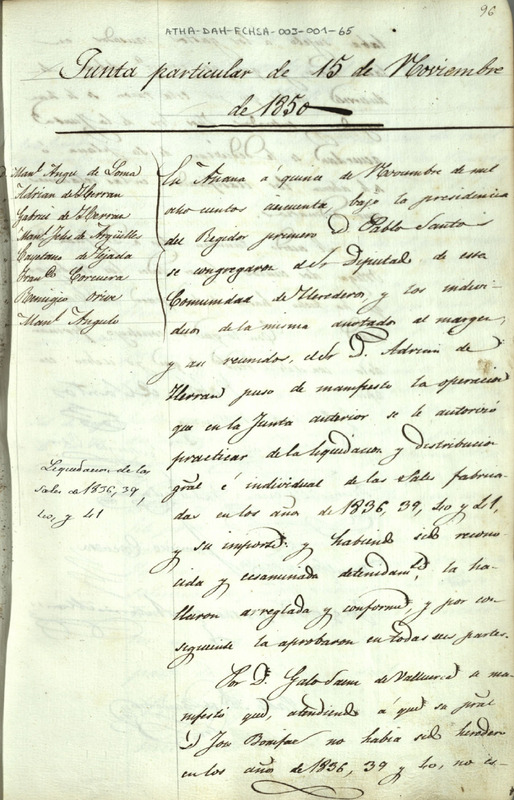 96
ATHA-DAH-FCHSA-003-001-65
Junta particular de 15 de Noviembre
de 1850
Manl. Angl. de Loma
Adrian de Herran
Gabriel de Herran
Manl. Felix de Argüelles
Cayetano de Tejada
Franco. Corcuera
Remigio Orive
Manl. Angulo
En Añana á quince de Noviembre de mil
ocho cientos cincuenta bajo la presidencia
del Regidor primero D. Pablo Santos
se congregaron el Sr. Diputal de esta
Comunidad de Herederos, y los indivi-
duos de la misma anotados al margen,
y asi reunidos, el Sr. D. Adrian de
Herran puso de manifiesto la operacion
que en la Junta anterior se le autorizó
practicar de la liquidacion y distribucion
gral. é individual de las Sales fabrica-
das en los años de 1836, 39, 40 y 41,
y su importe: y habiendo sido recono-
cida y ecsaminada detenidamte. la ha-
llaron arreglada y conforme, y por con-
siguiente la aprobaron en todas sus partes.
Liquidacion de las
sales de 1836, 39,
40, y 41
Por D. Galo Saenz de Valluerca se ma-
nifestó que, atendiendo á que su pral.
D. José Bonifaz no habia sido heredero
en los años de 1836, 39 y 40, no es-